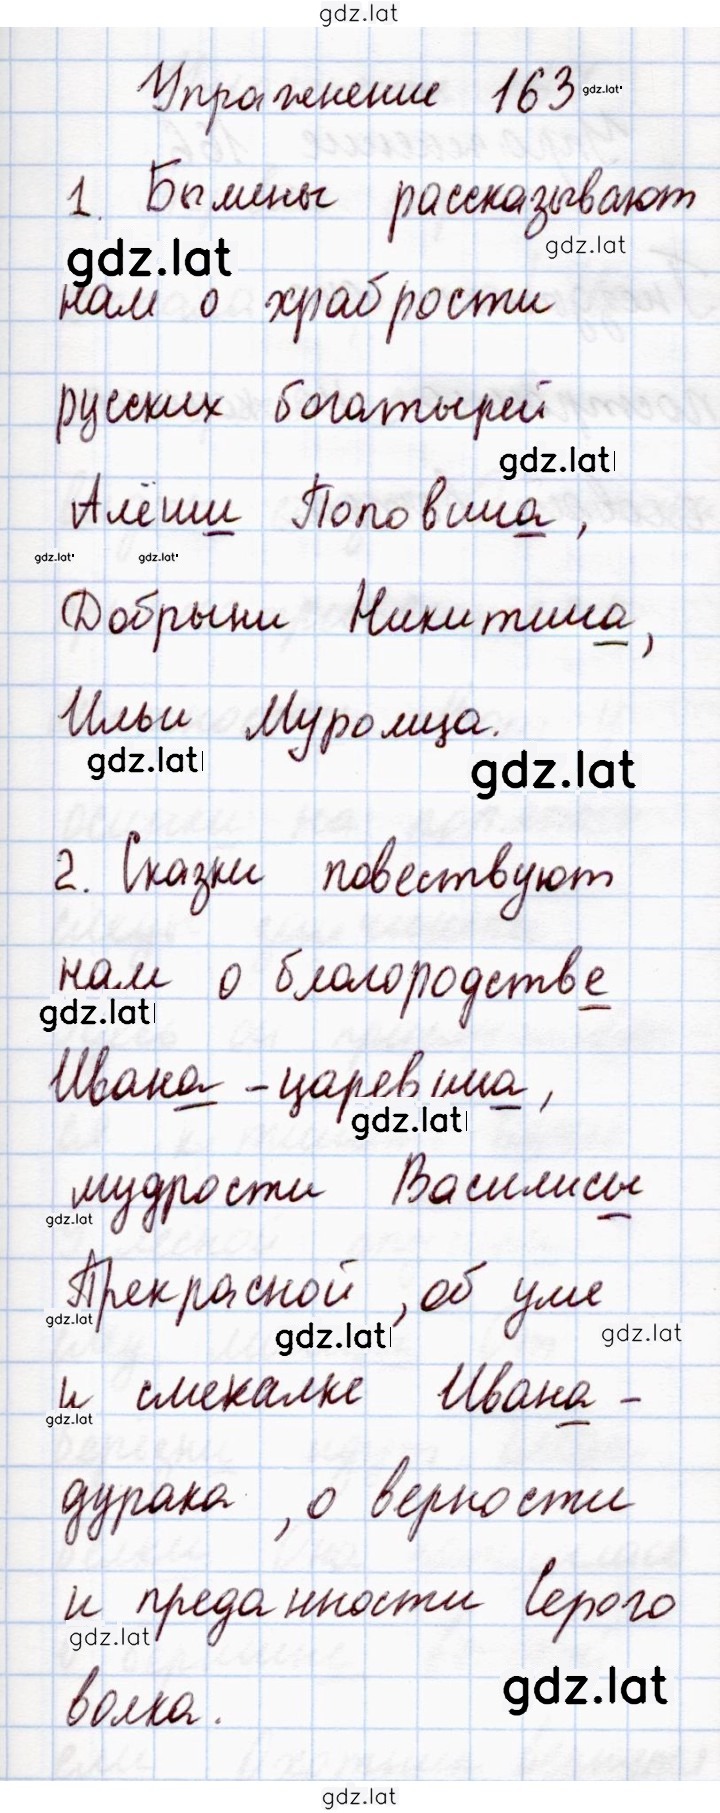 gdz.lat
Упражнение 163 gdz.lat
1. Былины рассказывают
gdz.lat gdz.lat
нам о храбрости
русских богатырей
gdz.lat
Алёши Поповича,
gdz.lat gdz.lat
Добрыни Никитича,
Ильи Муромца.
gdz.lat gdz.lat
2. Сказки повествуют
нам о благородстве
gdz.lat
Ивана-царевича,
gdz.lat
мудрости Василисы
gdz.lat
Прекрасной, об уме
gdz.lat gdz.lat gdz.lat
и смекалке Ивана-
gdz.lat
дурака, о верности
и преданности Серого
gdz.lat
волка.
gdz.lat
gdz.lat